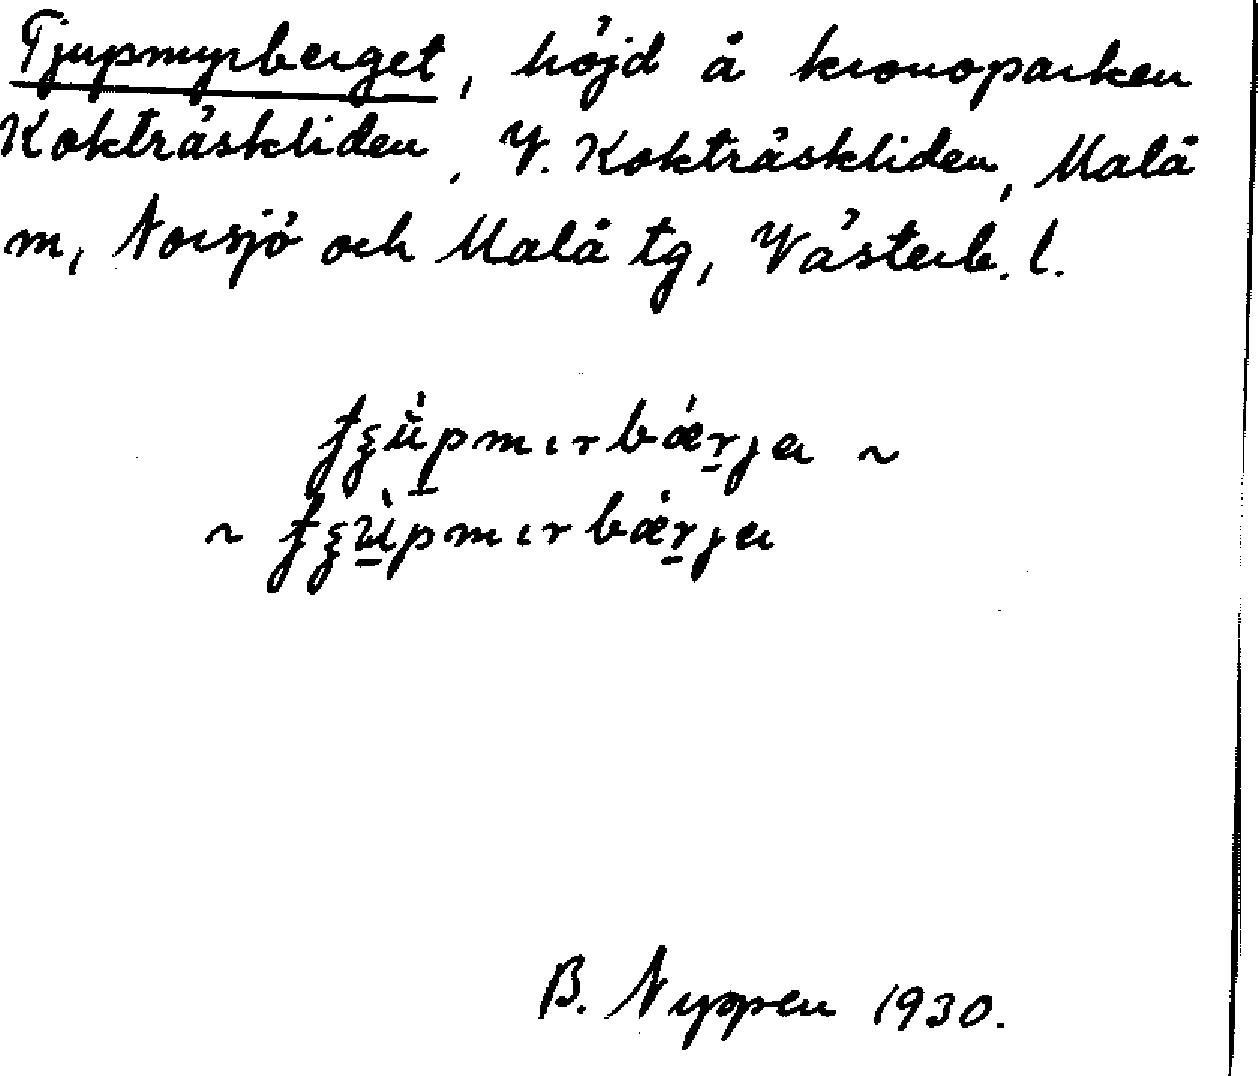 Tjupmyrberget, höjd å kronoparken
Kokträskliden, V. Kokträskliden, Malå
m, Norsjö och Malå tg, Västerb. l.
B. Nyppen 1930.